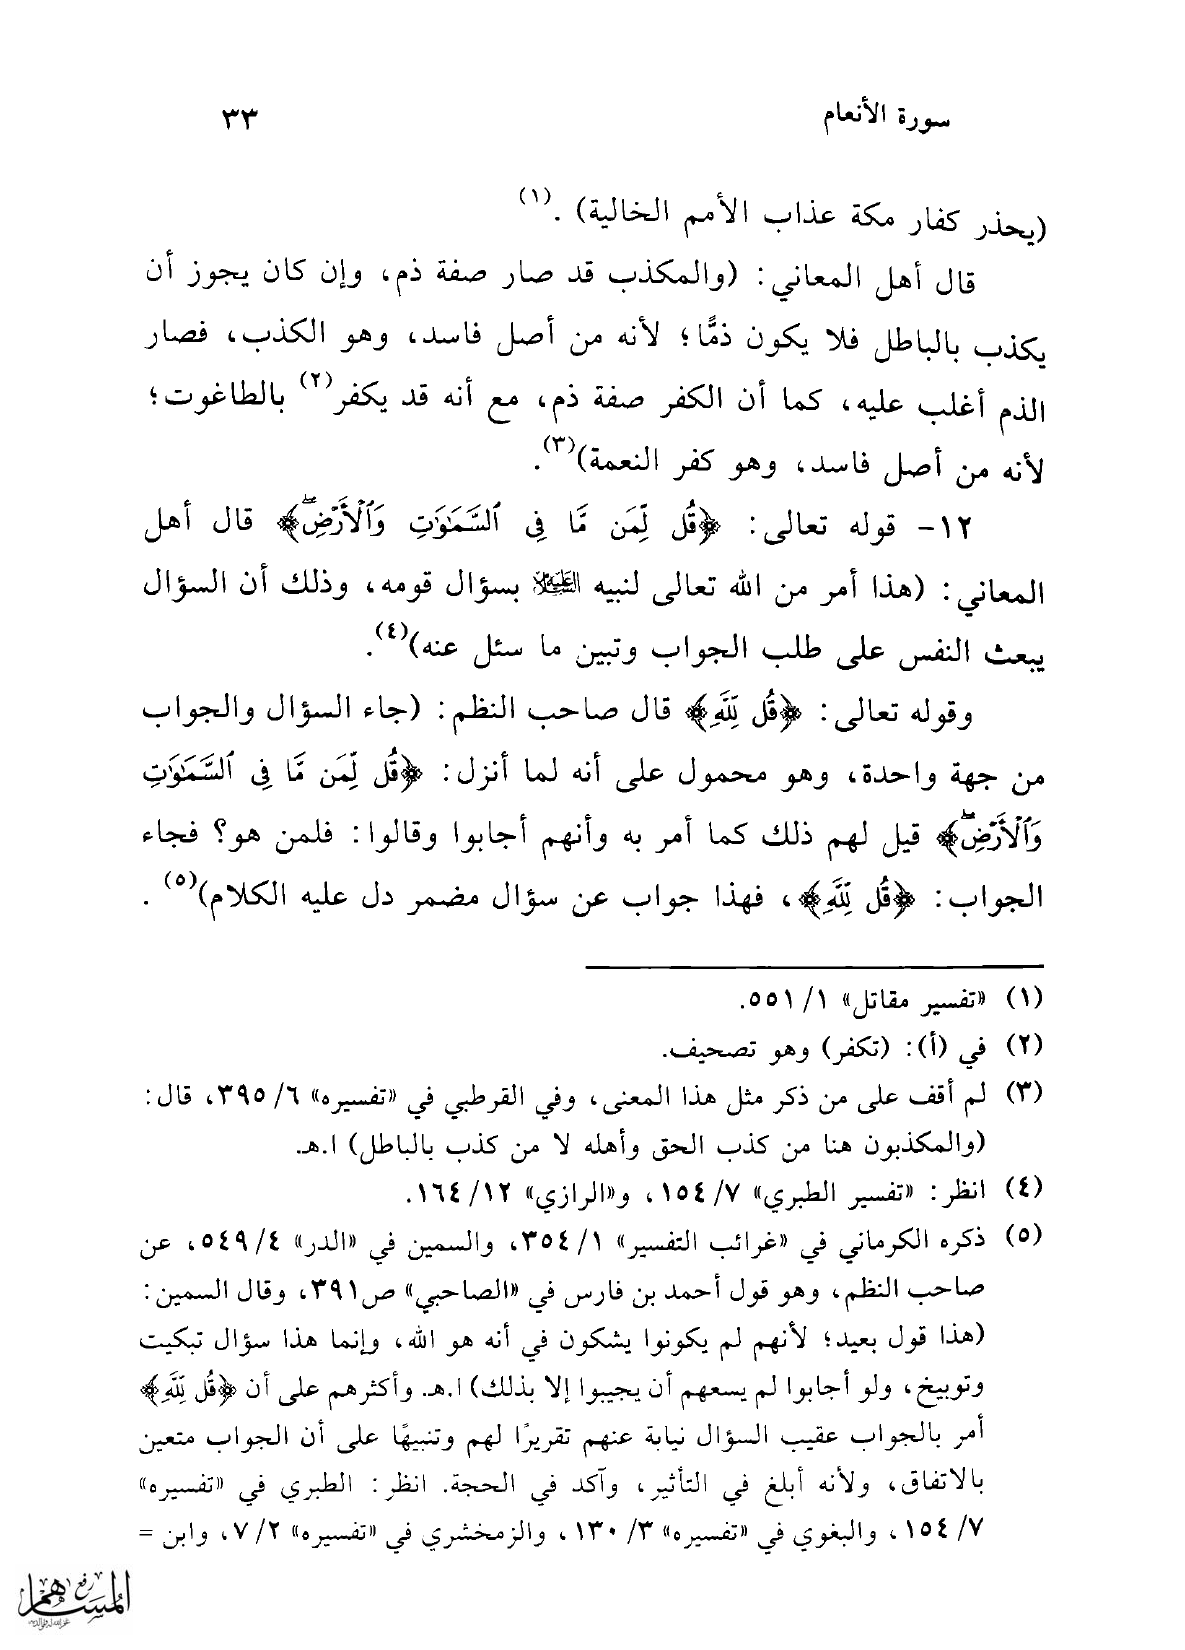 سورة الأنعام ٣٣
(يحذر كفار مكة عذاب الأمم الخالية) .(١)
قال أهل المعاني: (والمكذب قد صار صفة ذم، وإن كان يجوز أن
يكذب بالباطل فلا يكون ذمًّا؛ لأنه من أصل فاسد، وهو الكذب، فصار
الذم أغلب عليه، كما أن الكفر صفة ذم، مع أنه قد يكفر(٢) بالطاغوت؛
لأنه من أصل فاسد، وهو كفر النعمة)(٣).
١٢- قوله تعالى: ﴿قُل لِّمَن مَّا فِى ٱلسَّمَـٰوَٰتِ وَٱلْأَرْضِۖ﴾ قال أهل
المعاني: (هذا أمر من الله تعالى لنبيه عليه السلام بسؤال قومه، وذلك أن السؤال
يبعث النفس على طلب الجواب وتبين ما سئل عنه)(٤).
وقوله تعالى: ﴿قُل لِّلَّهِ﴾ قال صاحب النظم: (جاء السؤال والجواب
من جهة واحدة، وهو محمول على أنه لما أنزل: ﴿قُل لِّمَن مَّا فِى ٱلسَّمَـٰوَٰتِ
وَٱلْأَرْضِۖ﴾ قيل لهم ذلك كما أمر به وأنهم أجابوا وقالوا: فلمن هو؟ فجاء
الجواب: ﴿قُل لِّلَّهِ﴾، فهذا جواب عن سؤال مضمر دل عليه الكلام)(٥) .
(١) «تفسير مقاتل» ١/ ٥٥١.
(٢) في (أ): (تكفر) وهو تصحيف.
(٣) لم أقف على من ذكر مثل هذا المعنى، وفي القرطبي في «تفسيره» ٦/ ٣٩٥، قال:
(والمكذبون هنا من كذب الحق وأهله لا من كذب بالباطل) ا.هـ.
(٤) انظر: «تفسير الطبري» ٧/ ١٥٤، و«الرازي» ١٢/ ١٦٤.
(٥) ذكره الكرماني في «غرائب التفسير» ١/ ٣٥٤، والسمين في «الدر» ٤/ ٥٤٩، عن
صاحب النظم، وهو قول أحمد بن فارس في «الصاحبي» ص٣٩١، وقال السمين:
(هذا قول بعيد؛ لأنهم لم يكونوا يشكون في أنه هو الله، وإنما هذا سؤال تبكيت
وتوبيخ، ولو أجابوا لم يسعهم أن يجيبوا إلا بذلك) ا.هـ. وأكثرهم على أن ﴿قُل لِّلَّهِ﴾
أمر بالجواب عقيب السؤال نيابة عنهم تقريرًا لهم وتنبيهًا على أن الجواب متعين
بالاتفاق، ولأنه أبلغ في التأثير، وآكد في الحجة. انظر: الطبري في «تفسيره»
٧/ ١٥٤، والبغوي في «تفسيره» ٣/ ١٣٠، والزمخشري في «تفسيره» ٢/ ٧، وابن =
رفع
المساهم